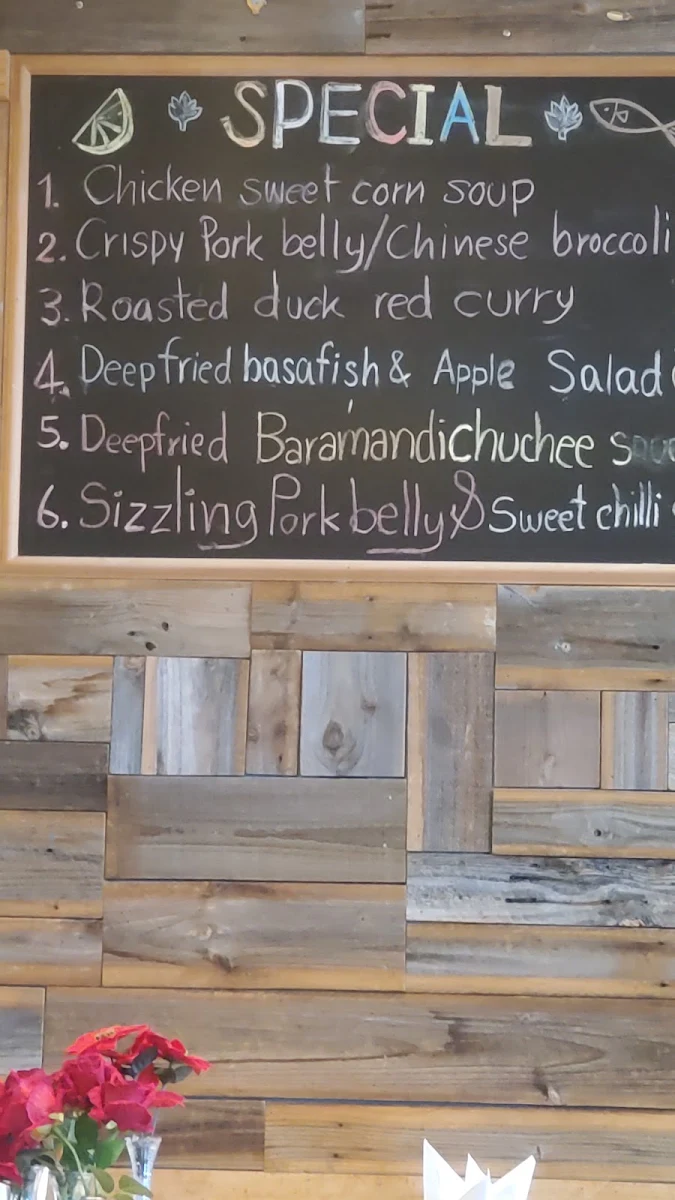 SPECIAL
1. Chicken sweet corn soup
2. Crispy Pork belly/Chinese broccoli
3. Roasted duck red curry
4. Deepfried basafish & Apple Salad
5. Deepfried Baramandichuchee
6. Sizzling Pork belly & Sweet chilli